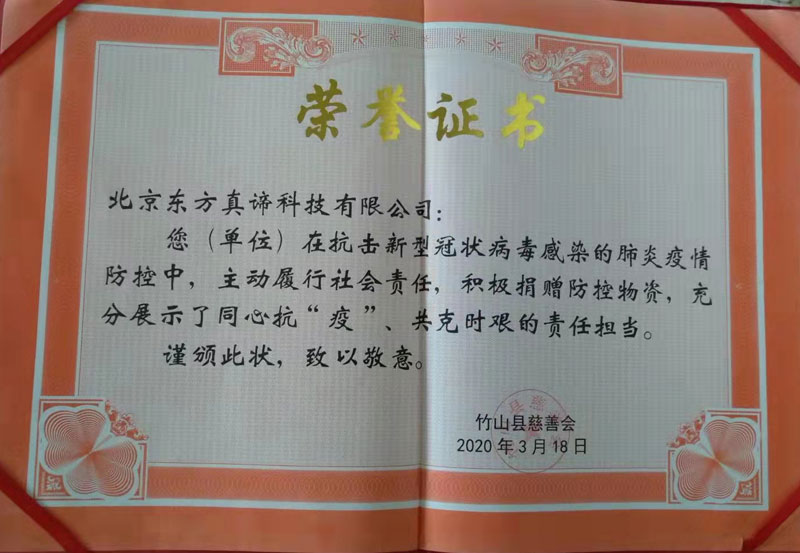 荣誉证书
北京东方真谛科技有限公司：
您（单位）在抗击新型冠状病毒感染的肺炎疫情
防控中，主动履行社会责任，积极捐赠防控物资，充
分展示了同心抗“疫”、共克时艰的责任担当。
谨颁此状，致以敬意。
竹山县慈善会
2020年3月18日